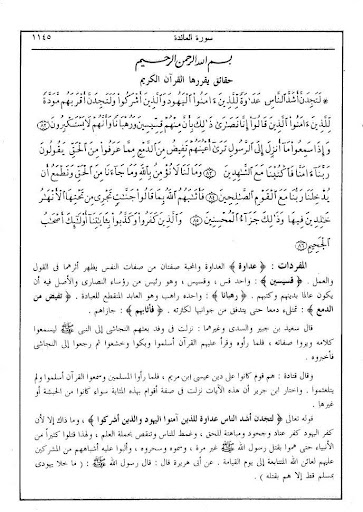 سورة المائدة ١١٤٥
بسم الله الرحمن الرحيم
حقائق يقررها القرآن الكريم
* لَتَجِدَنَّ أَشَدَّ النَّاسِ عَدَاوَةً لِلَّذِينَ ءَامَنُوا الْيَهُودَ وَالَّذِينَ أَشْرَكُوا وَلَتَجِدَنَّ أَقْرَبَهُم مَّوَدَّةً
لِلَّذِينَ ءَامَنُوا الَّذِينَ قَالُوا إِنَّا نَصَارَىٰ ذَٰلِكَ بِأَنَّ مِنْهُمْ قِسِّيسِينَ وَرُهْبَانًا وَأَنَّهُمْ لَا يَسْتَكْبِرُونَ ﴿٨٢﴾
وَإِذَا سَمِعُوا مَا أُنزِلَ إِلَى الرَّسُولِ تَرَىٰ أَعْيُنَهُمْ تَفِيضُ مِنَ الدَّمْعِ مِمَّا عَرَفُوا مِنَ الْحَقِّ يَقُولُونَ
رَبَّنَا ءَامَنَّا فَاكْتُبْنَا مَعَ الشَّاهِدِينَ ﴿٨٣﴾ وَمَا لَنَا لَا نُؤْمِنُ بِاللَّهِ وَمَا جَاءَنَا مِنَ الْحَقِّ وَنَطْمَعُ أَن
يُدْخِلَنَا رَبُّنَا مَعَ الْقَوْمِ الصَّالِحِينَ ﴿٨٤﴾ فَأَثَابَهُمُ اللَّهُ بِمَا قَالُوا جَنَّاتٍ تَجْرِي مِن تَحْتِهَا الْأَنْهَارُ
خَالِدِينَ فِيهَا وَذَٰلِكَ جَزَاءُ الْمُحْسِنِينَ ﴿٨٥﴾ وَالَّذِينَ كَفَرُوا وَكَذَّبُوا بِآيَاتِنَا أُولَٰئِكَ أَصْحَابُ
الْجَحِيمِ ﴿٨٦﴾
المفردات : ﴿ عداوة ﴾ العداوة والمحبة صفتان من صفات النفس يظهر أثرهما في القول
والعمل . ﴿ قسيسين ﴾ : واحد قس ، وقسيس ، وهو رئيس من رؤساء النصارى والأصل فيه أن
يكون عالمًا بدينهم وكتبهم . ﴿ رهبانا ﴾ : واحده راهب وهو العابد المنقطع للعبادة . ﴿ تفيض من
الدمع ﴾ : تمتلئ دمعا حتى يتدفق من جوانبها لكثرته . ﴿ فأثابهم ﴾ : جازاهم .
قال سعيد بن جبير والسدى وغيرهما : نزلت في وفد بعثهم النجاشى إلى النبى ﷺ ليسمعوا
كلامه ويروا صفاته ، فلما رأوه وقرأ عليهم القرآن أسلموا وبكوا وخشعوا ثم رجعوا إلى النجاشى
فأخبروه .
وقال قتادة : هم قوم كانوا على دين عيسى ابن مريم ، فلما رأوا المسلمين وسمعوا القرآن أسلموا ولم
يتلعثموا . واختار ابن جرير أن هذه الآيات نزلت في صفة أقوام بهذه المثابة سواء كانوا من الحبشة أو
غيرها .
قوله تعالى ﴿ لتجدن أشد الناس عداوة للذين آمنوا اليهود والذين أشركوا ﴾ ، وما ذاك إلا لأن
كفر اليهود كفر عناد وجحود ومباهتة للحق ، وغمط للناس وتنقص بحملة العلم ، ولهذا قتلوا كثيرا من
الأنبياء حتى هموا بقتل رسول الله ﷺ غير مرة ، وسموه وسحروه ، وألبوا عليه أشباههم من المشركين
عليهم لعائن الله المتتابعة إلى يوم القيامة . عن أبى هريرة قال : قال رسول الله ﷺ : ( ما خلا يهودى
بمسلم قط إلا هم بقتله ) .